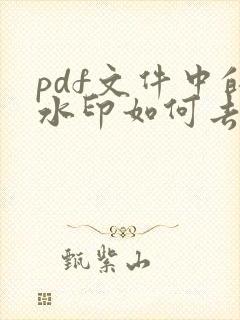 pdf文件中的
水印如何去
甄紫山